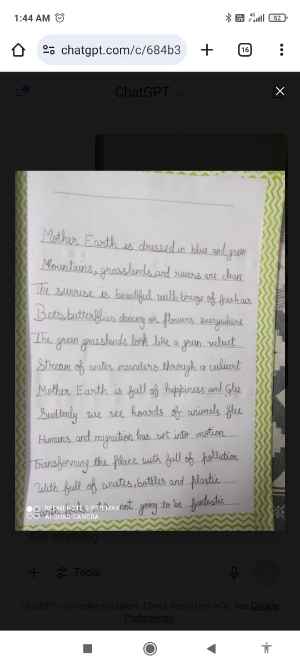 1:44 AM
62
chatgpt.com/c/684b3
16
ChatGPT
Mother Earth is dressed in blue and green
Mountains, grasslands and rivers are clean
The sunrise is beautiful with of
Bees butterflies on flowers everywhere
The green grasslands look like a green velvet
Stream of water meanders through a culvert
Mother Earth is full of happiness and glee
Suddenly we see hoards of animals flee
Humans and migration has set into motion
Transforming the place with full of pollution
With full of wastes, bottles and plastic
not going to be fantastic
AI QUAD CAMERA
Tools